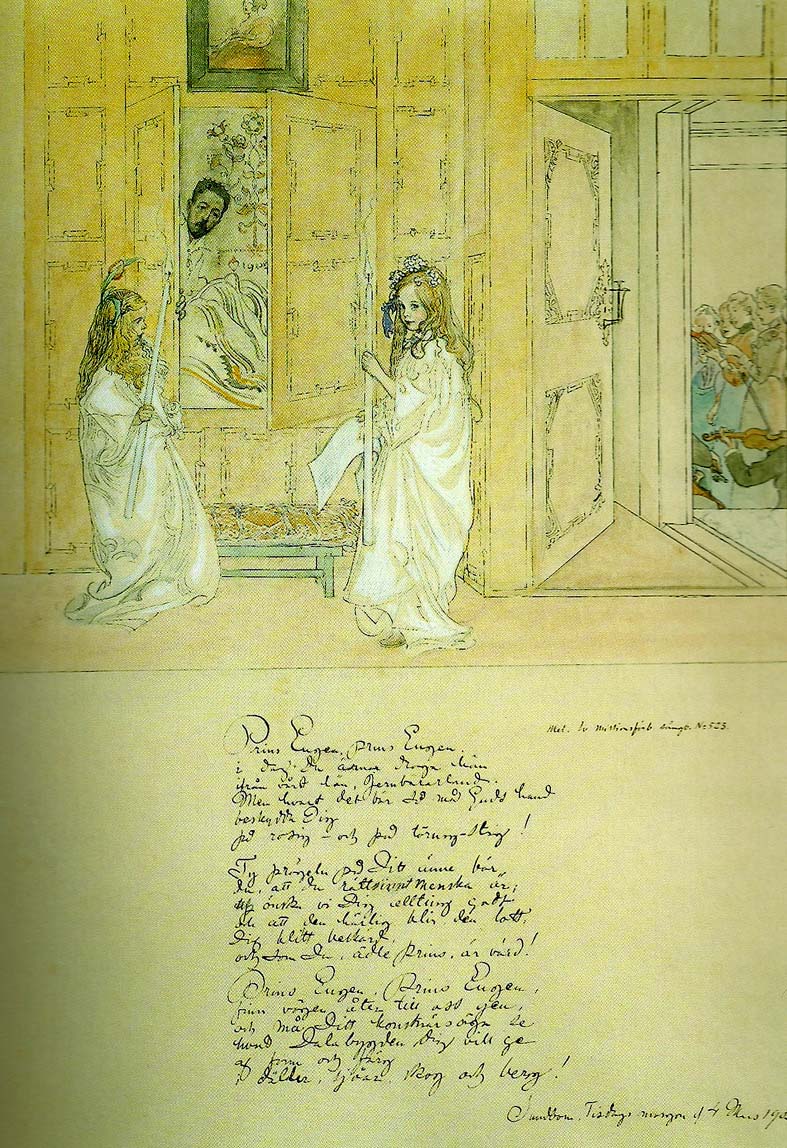 Mel. Sv Missionsförb. sångb. No 523.
Prins Eugen, Prins Eugen,
i dag Du ärnar draga hän
ifrån vårt län, Jernbäraland.
Men hvart det bär så må Guds hand
beskydda Dig
på rosig – och på törnig-stig!
Ty prägeln på Ditt änne bär
du, att du rättsinnt Menska är;
önska vi Dig allting godt
och att den härlig blir, den lott,
Dig blitt beskärd,
och som Du, ädle Prins, är värd!
Prins Eugen, Prins Eugen,
finn vägen åter till oss igen,
och må Ditt konstnärsöga se
hvad Dalabygden dig vill ge
af form och färg
i dälder, sjöar, skog och berg!
Sundborn, Tisdags morgon d. 4 Mars 190